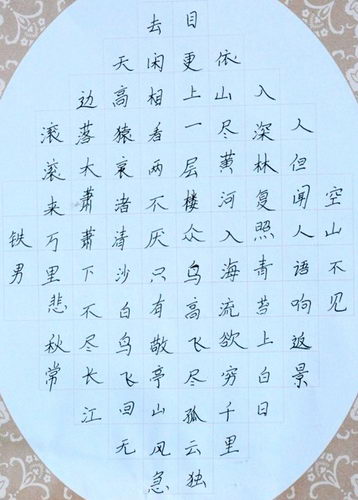 空山不见
人但闻人语响返景
入深林复照青苔上白日
依山尽黄河入海流欲穷千里
目更上一层楼众鸟高飞尽孤云独
去闲相看两不厌只有敬亭山风急
天高猿哀渚清沙白鸟飞回无
边落木萧萧下不尽长江
滚滚来万里悲秋常
铁男